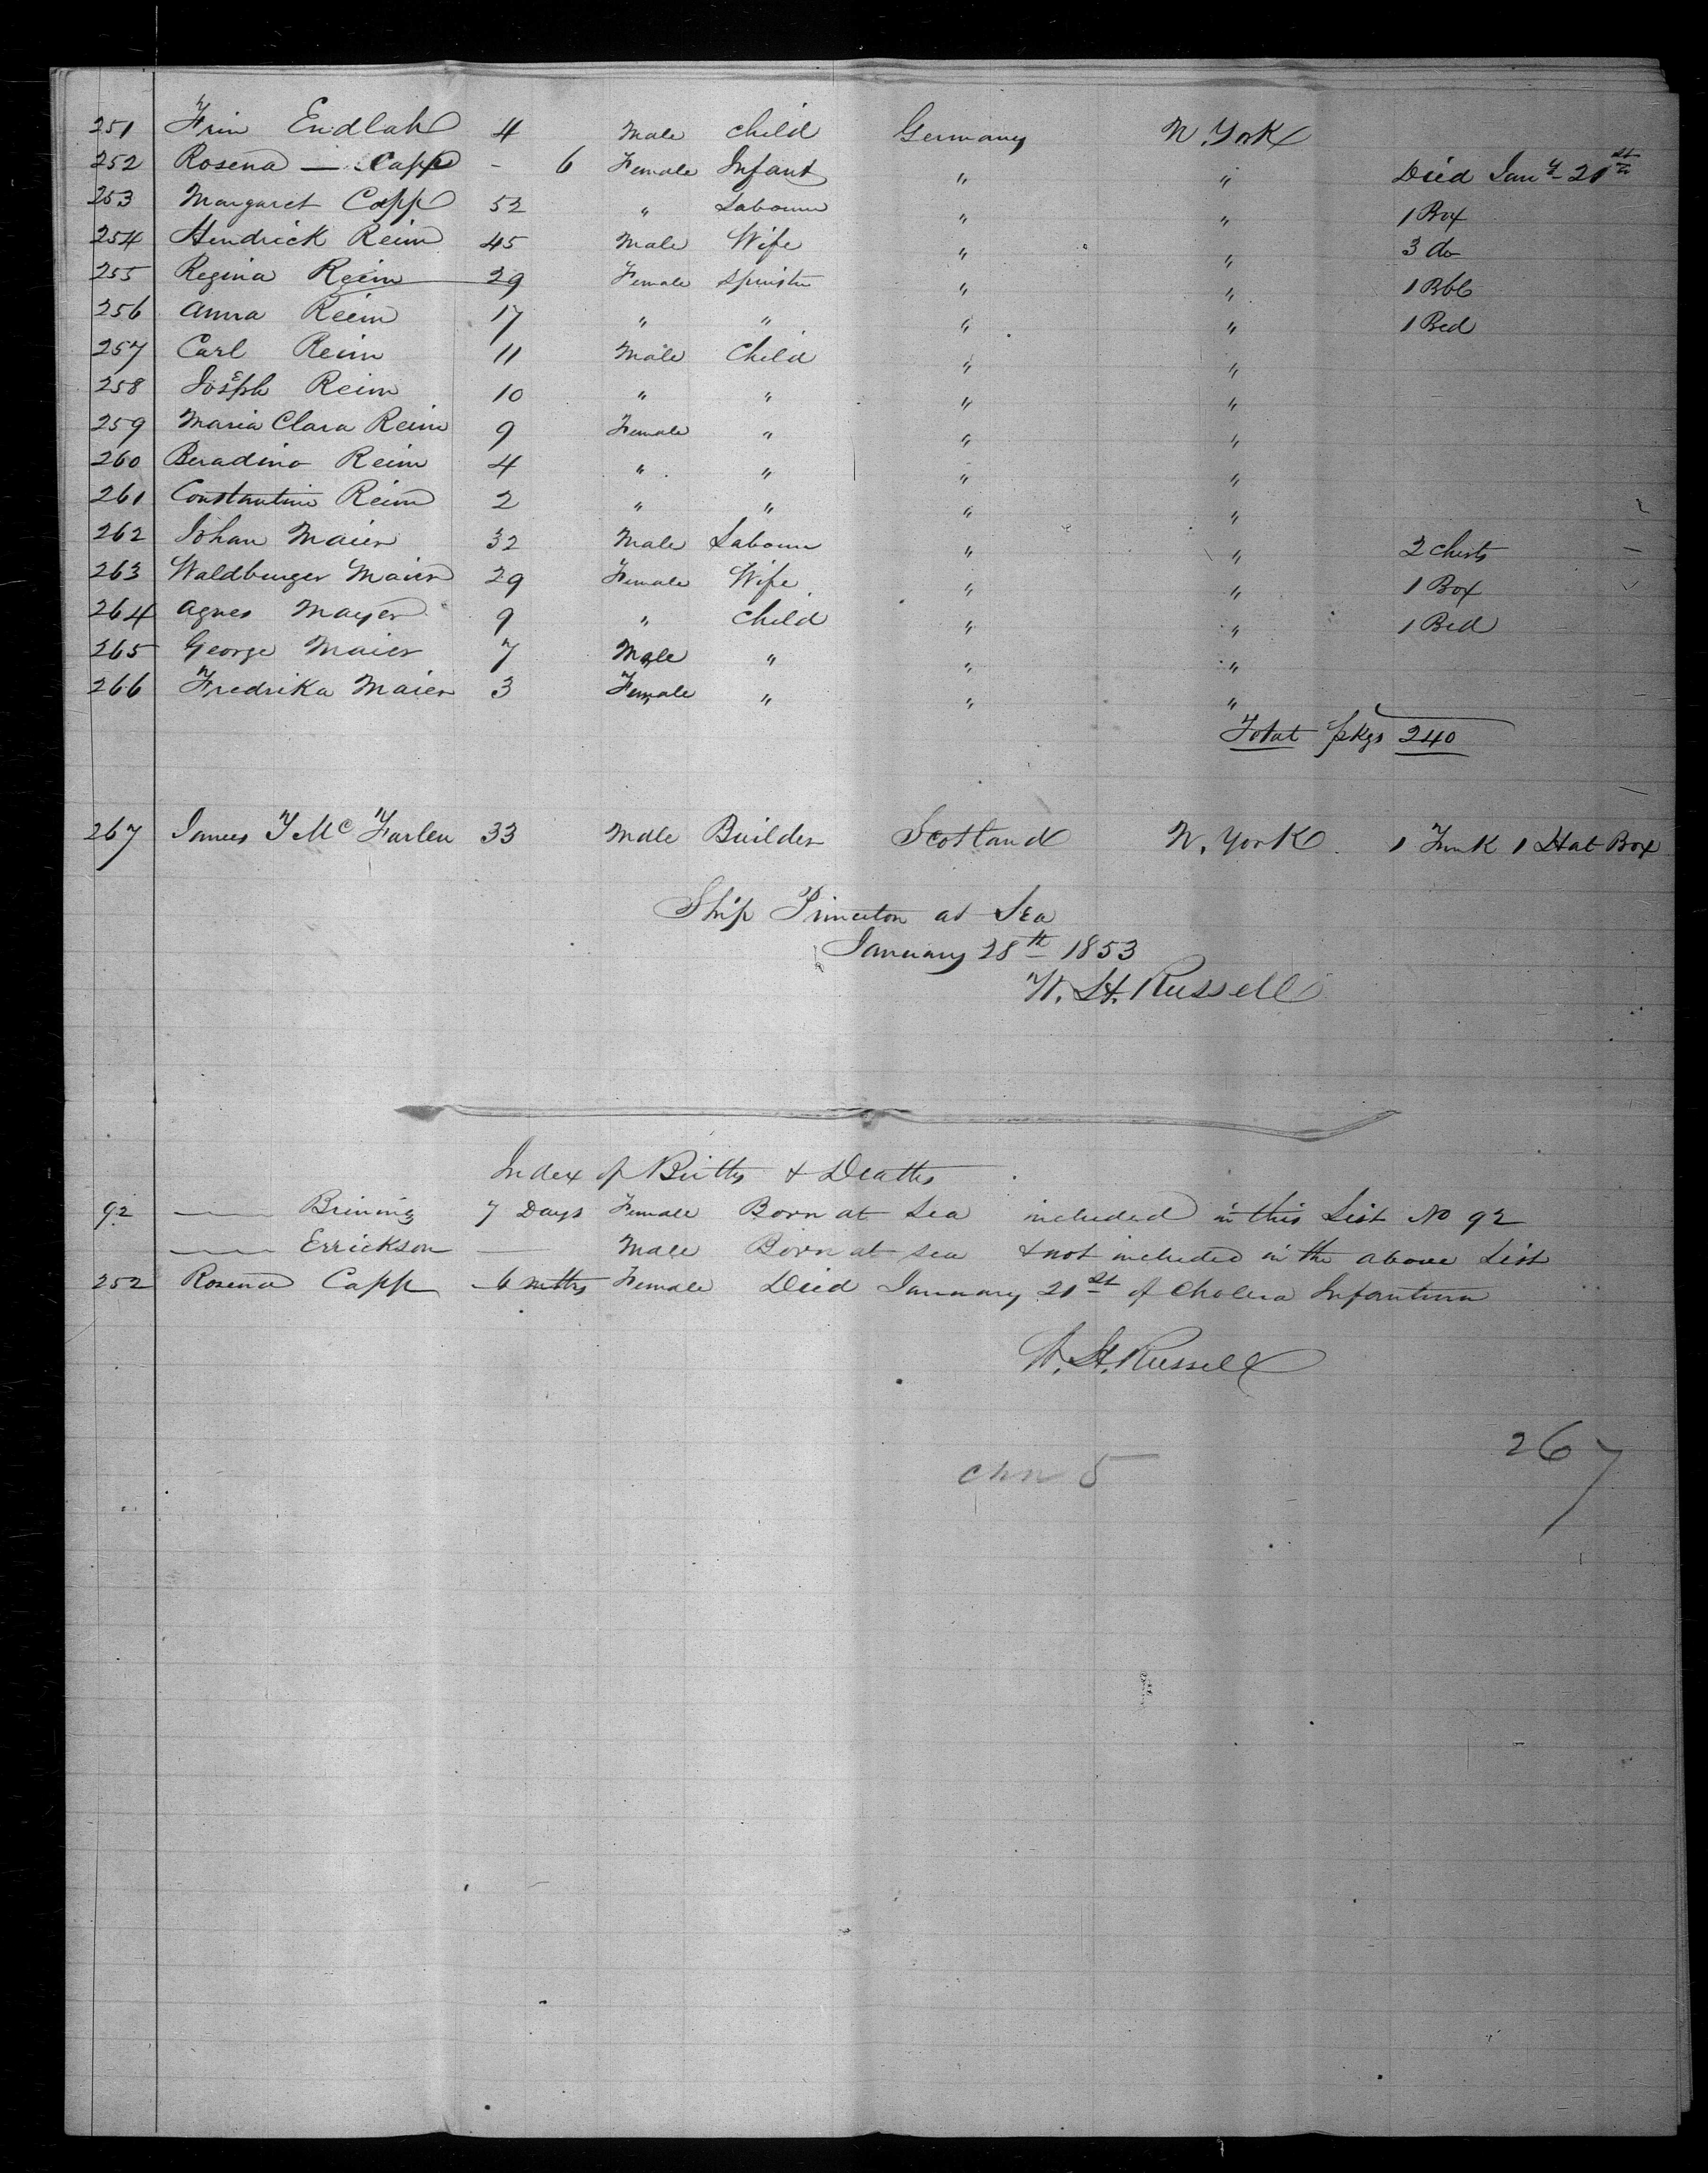 251 Frin Endlah 4 Male Child Germany N. York
252 Rosena — Capp - 6 Female Infant " " Died Jany 21st
253 Margaret Capp 52 " Labourer " " 1 Box
254 Hendrick Reim 45 Male Wife " " 3 do
255 Regina Reim 29 Female Spinster " " 1 Bbl
256 Anna Reim 17 " " " " 1 Bed
257 Carl Reim 11 Male Child " "
258 Joseph Reim 10 " " " "
259 Maria Clara Reim 9 Female " " "
260 Beradino Reim 4 " " " "
261 Constantine Reim 2 " " " "
262 Johan Maier 32 Male Labourer " " 2 Chests
263 Waldburger Maier 29 Female Wife " " 1 Box
264 Agnes Mayer 9 " Child " " 1 Bed
265 George Maier 7 Male " " "
266 Fredrika Maier 3 Female " " "
Total pkgs 240
267 James T McFarlen 33 Male Builder Scotland N. York 1 Trunk 1 Hat Box
Ship Princeton at Sea
January 28th 1853
W. H. Russell
Index of Births & Deaths
92 —— Brining 7 Days Female Born at Sea included in this List No 92
—— Errickson — Male Born at Sea & not included in the above List
252 Rosena Capp - 6 mths Female Died January 21st of Cholera Infantum
W. H. Russell
267